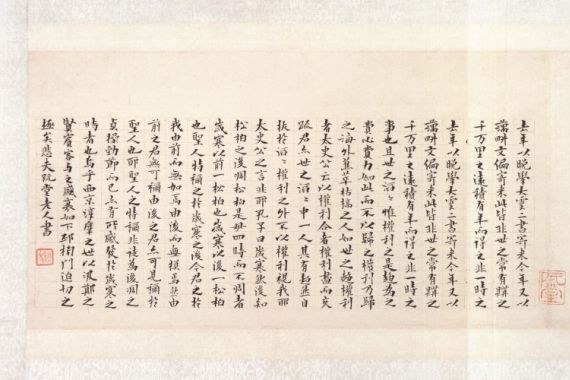 去年以晚學大雲二書寄來今年又以
藕畊文編寄來此皆非世之常有購之
千万里之遠積有年而得之非一時之
去年以晚學大雲二書寄來今年又以
藕畊文編寄來此皆非世之常有購之
千万里之遠積有年而得之非一時之
事也且世之滔〻惟權利之是趨為之
費心費力如此而不以歸之權利乃歸
之海外蕉萃枯槁之人如世之趨權利
者太史公云以權利合者權利盡而交
踈君亦世之滔〻中一人其有超然自
拔於滔〻權利之外不以權利視我耶
太史公之言非耶孔子曰歲寒然後知
松栢之後凋松栢是毌四時而不凋者
歲寒以前一松栢也歲寒以後一松栢
也聖人特稱之於歲寒之後今君之於
我由前而無加焉由後而無損焉然由
前之君無可稱由後之君亦可見稱於
聖人也耶聖人之特稱非徒為後凋之
貞操勁節而已亦有所感發於歲寒之
時者也烏乎西京淳厚之世以汲鄭之
賢賓客與之盛衰如下邳榜門迫切之
極矣悲夫阮堂老人書
阮堂